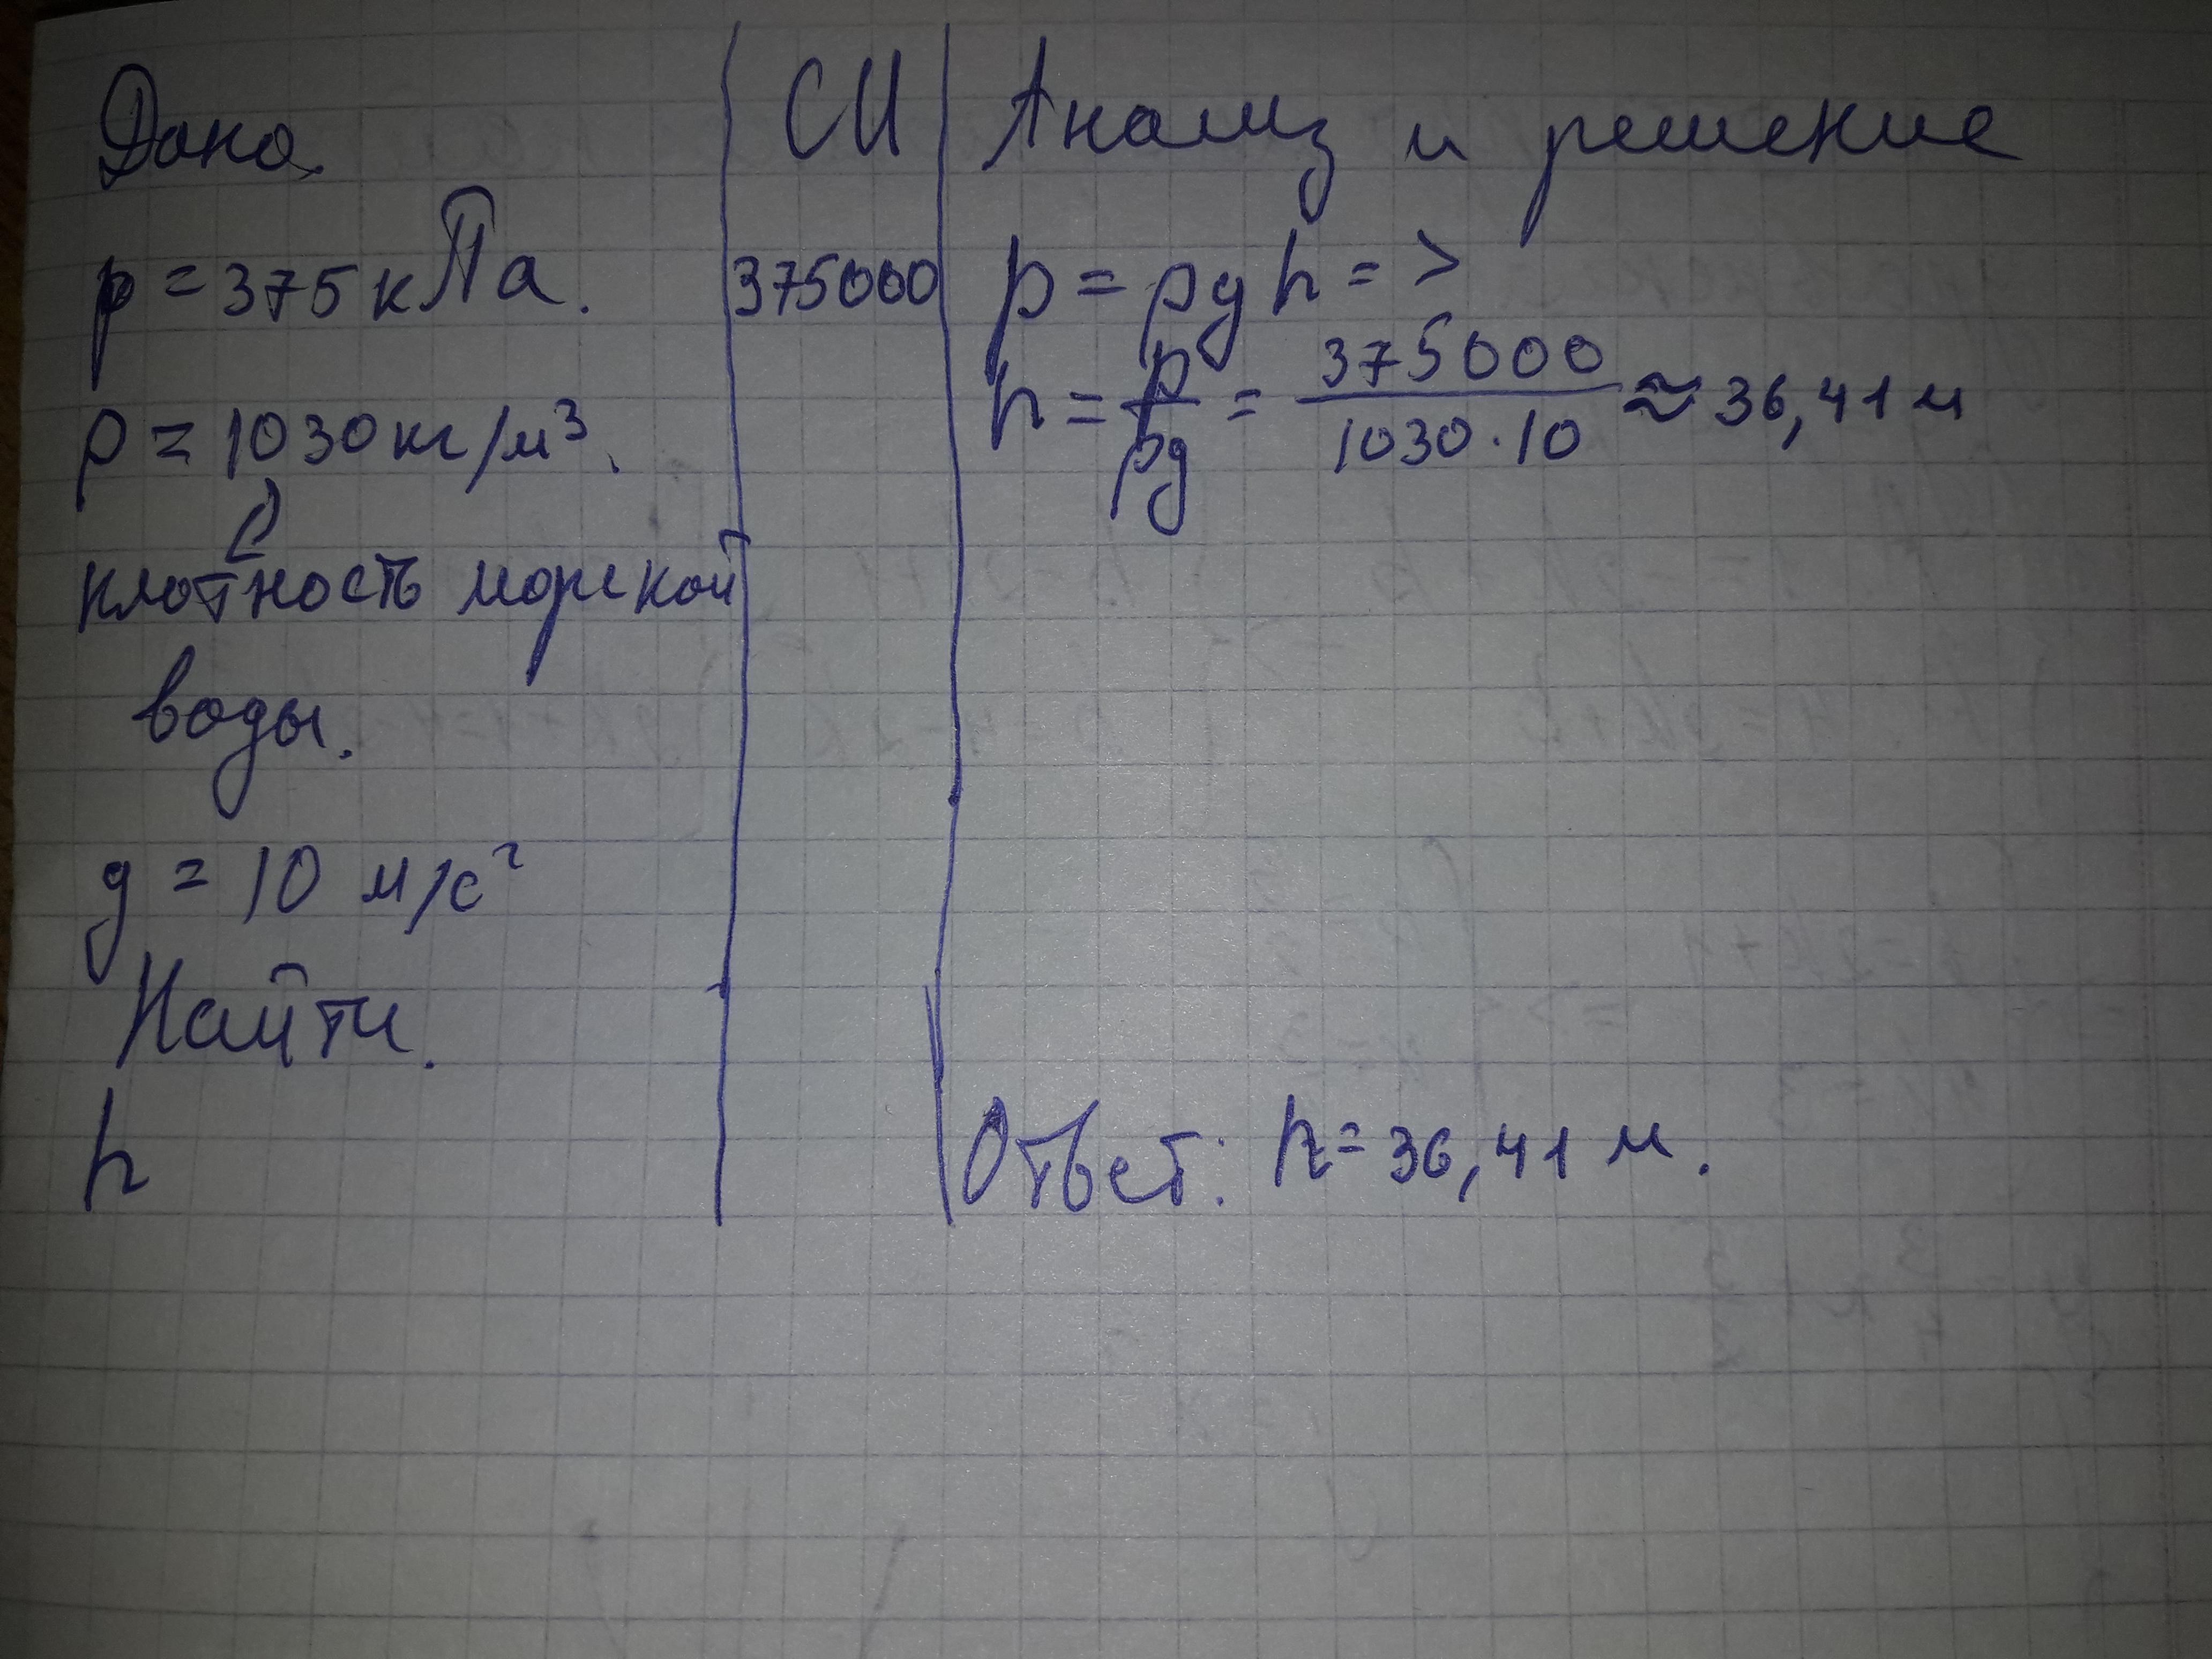 Дано
p = 375 кПа.
ρ = 1030 кг/м³.
плотность морской
воды.
g = 10 м/с²
Найти.
h
СИ
375000
Анализ и решение
p = ρgh =>
h = p/ρg = 375000/1030·10 ≈ 36,41 м
Ответ: h = 36,41 м.